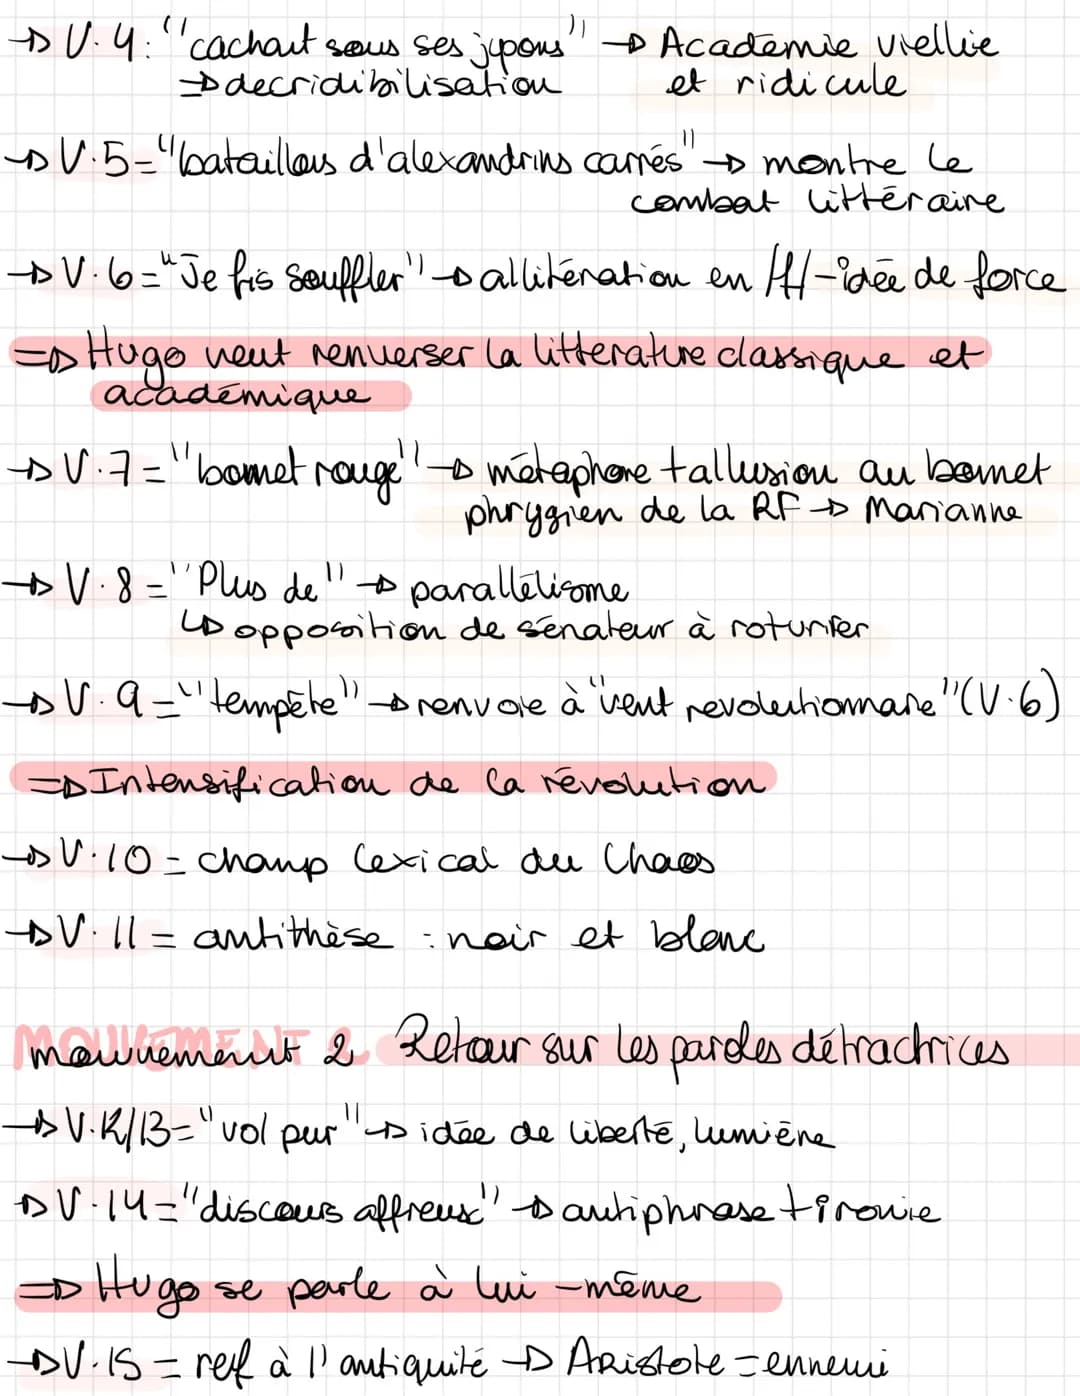 → V.4: "cachait sous ses jupons" → Académie viellie
⇒ decridibilisation et ridicule
→ V.5 = "bataillons d'alexandrins carrés" → montre le
combat littéraire
→ V.6 = "Je fis souffler" → allitération en /f/ - idée de force
⇒ Hugo veut renverser la litterature classique et
académique
→ V.7 = "bonnet rouge" → métaphore + allusion au bonnet
phrygien de la RF → Marianne
→ V.8 = "Plus de" → parallélisme
↳ opposition de sénateur à roturier
→ V.9 = "tempête" → renvoie à "vent revolutionnaire" (V.6)
⇒ Intensification de la révolution
→ V.10 = champ lexical du Chaos
→ V.11 = antithèse : noir et blanc
MOUVEMENT 2 Retour sur les paroles détractrices
→ V.12/13 = "vol pur" → idée de liberté, lumière
→ V.14 = "discours affreux" → antiphrase + ironie
⇒ Hugo se parle à lui-même
→ V.15 = ref à l'antiquité → Aristote = ennemi